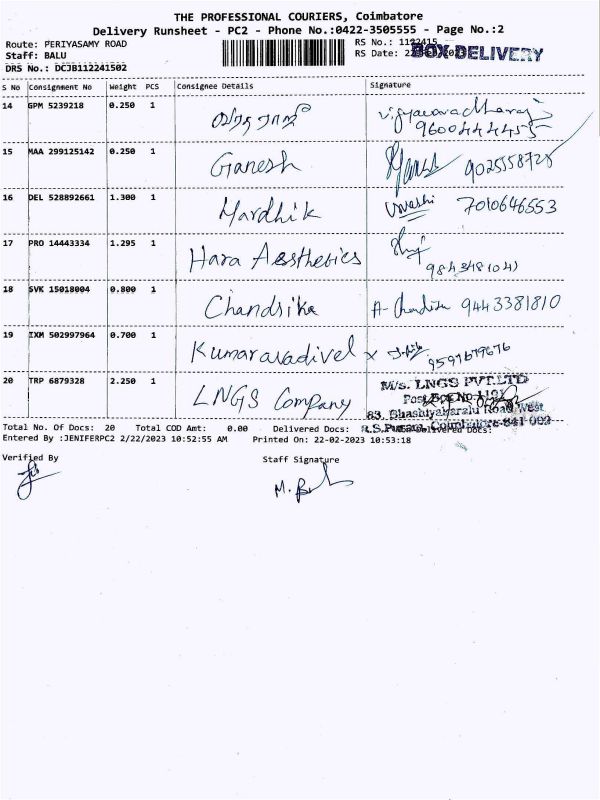 THE PROFESSIONAL COURIERS, Coimbatore
Delivery Runsheet - PC2 - Phone No.:0422-3505555 - Page No.:2
Route: PERIYASAMY ROAD RS No.: 1122415
Staff: BALU RS Date: BOX-DELIVERY
DRS No.: DCJB112241502
S No Consignment No Weight PCS Consignee Details Signature
14 GPM 5239218 0.250 1
15 MAA 299125142 0.250 1 Ganesh 9025558728
16 DEL 528892661 1.300 1 Mardhik 7010646553
17 PRO 14443334 1.295 1 Hara Aesthetics
18 SVK 15018004 0.800 1 Chandrika 9443381810
19 IXM 502997964 0.700 1 Kumaravadivel x
20 TRP 6879328 2.250 1 LNGS Company M/s. LNGS PVT.LTD
Post Box No.1101
83, Bhashiyakaralu Road West
Total No. Of Docs: 20 Total COD Amt: 0.00 Delivered Docs: R.S.Puram, Coimbatore-641 002
Entered By :JENIFERPC2 2/22/2023 10:52:55 AM Printed On: 22-02-2023 10:53:18
Verified By Staff Signature